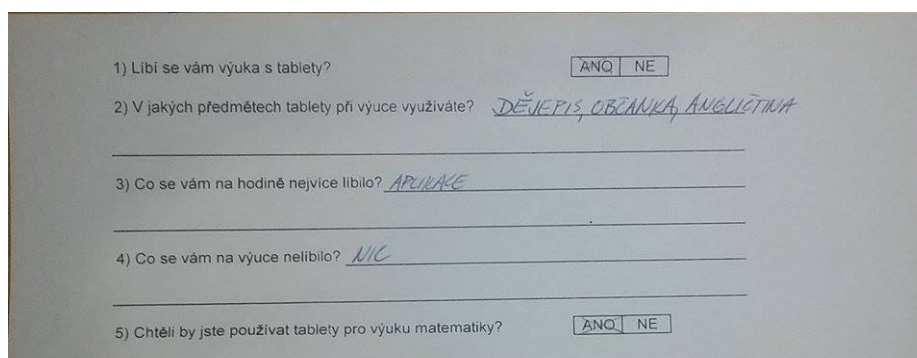 1) Líbí se vám výuka s tablety? ANO NE
2) V jakých předmětech tablety při výuce využíváte? DĚJEPIS, OBČANKA, ANGLIČTINA
3) Co se vám na hodině nejvíce líbilo? APLIKACE
4) Co se vám na výuce nelíbilo? NIC
5) Chtěli by jste používat tablety pro výuku matematiky? ANO NE